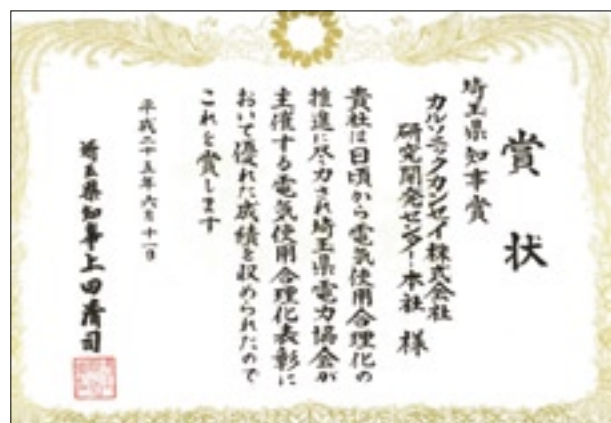 賞状
埼玉県知事賞
カルソニックカンセイ株式会社
研究開発センター・本社 様
貴社は日頃から電気使用合理化の
推進に尽力され埼玉県電力協会が
主催する電気使用合理化表彰に
おいて優れた成績を収められたので
これを賞します
平成二十五年六月十一日
埼玉県知事上田清司